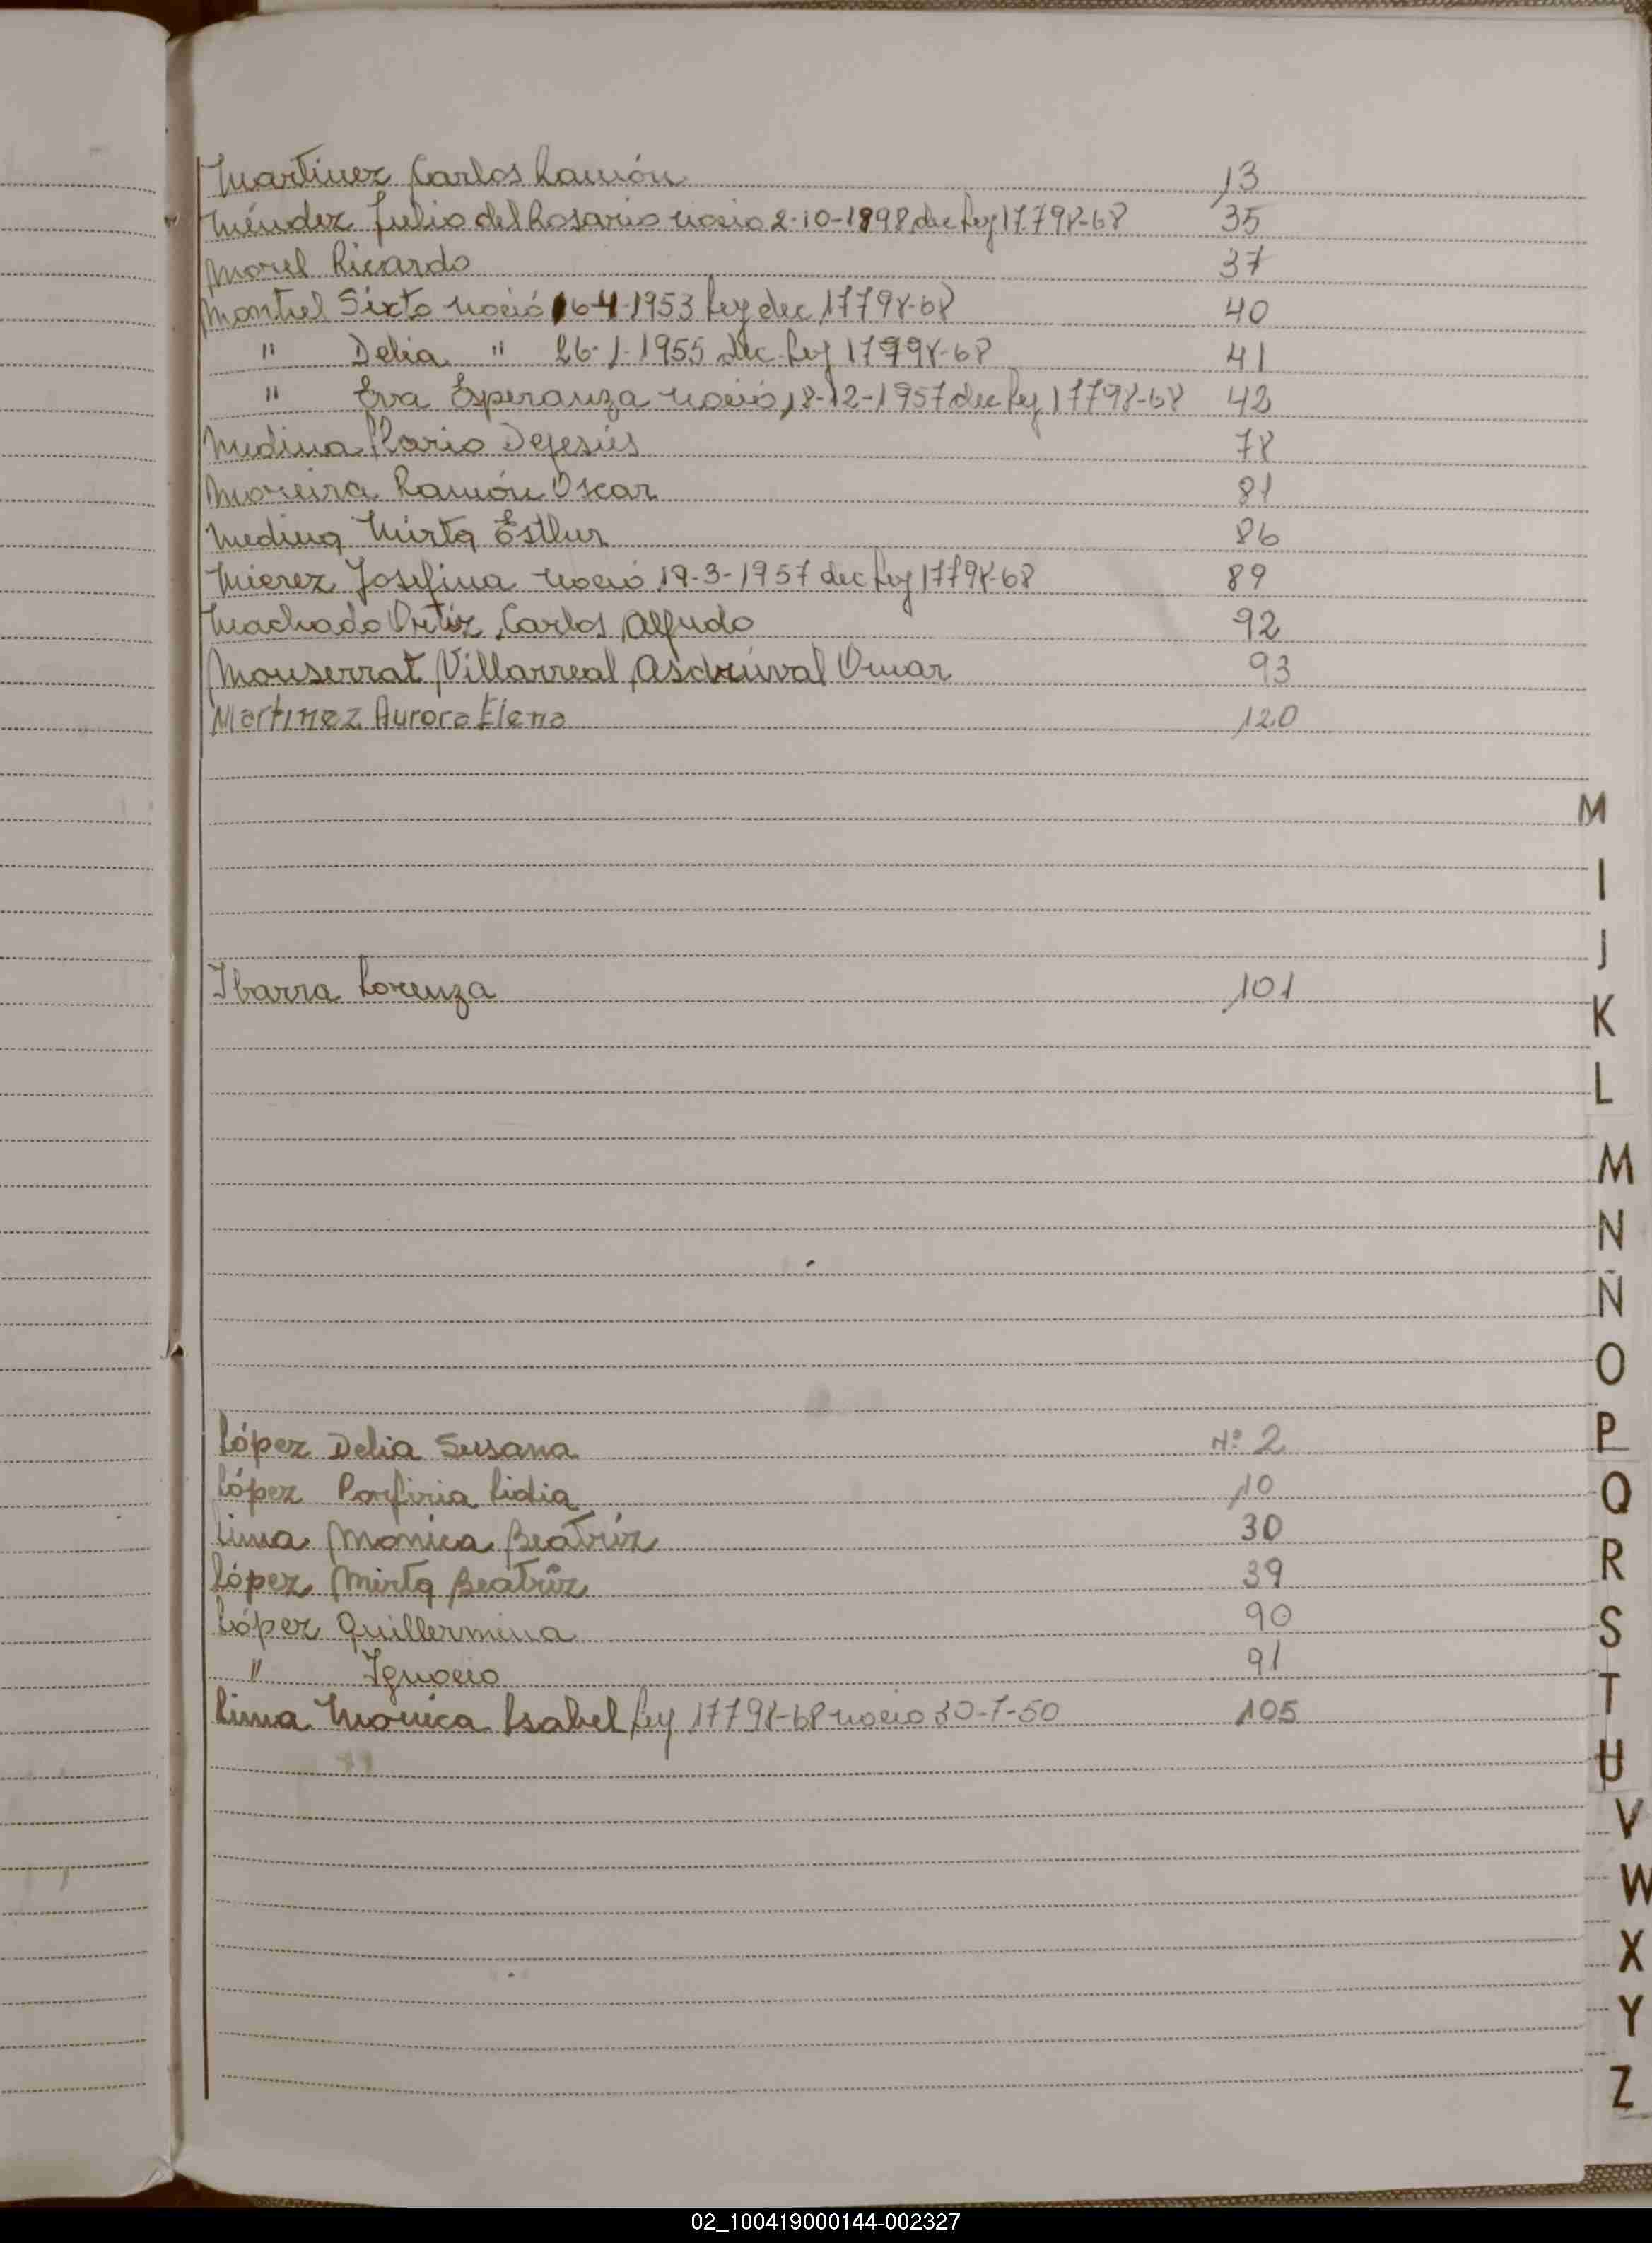 Martinez Carlos Ramón 13
Méndez Julio del Rosario nacio 2-10-1898 dec ley 17798-68 35
Morel Ricardo 37
Montiel Sixto nació 16-4-1953 ley dec 17798-68 40
" Delia " 26-1-1955 dec-ley 17798-68 41
" Eva Esperanza nació 18-12-1957 dec ley 17798-68 42
Medina Dejesús 78
Moreira Ramón Oscar 81
Medina Mirta Esther 86
Mierez Josefina nació 19-3-1957 dec ley 17798-68 89
Machado Ortíz, Carlos Alfredo 92
Monserrat Villarreal, Asdrúval Omar 93
Martinez Aurora Elena 120
M
I
J
Ibarra Lorenza 101
K
L
M
N
Ñ
O
P
López Delia Susana Nº 2
Q
López Porfiria Lidia 10
Lima Monica Beatríz 30
R
López Mirta Beatríz 39
López Guillermina 90
S
" Ignacio 91
T
Lima Monica Isabel ley 17798-68 nacio 30-7-50 105
U
V
W
X
Y
Z
02_100419000144-002327